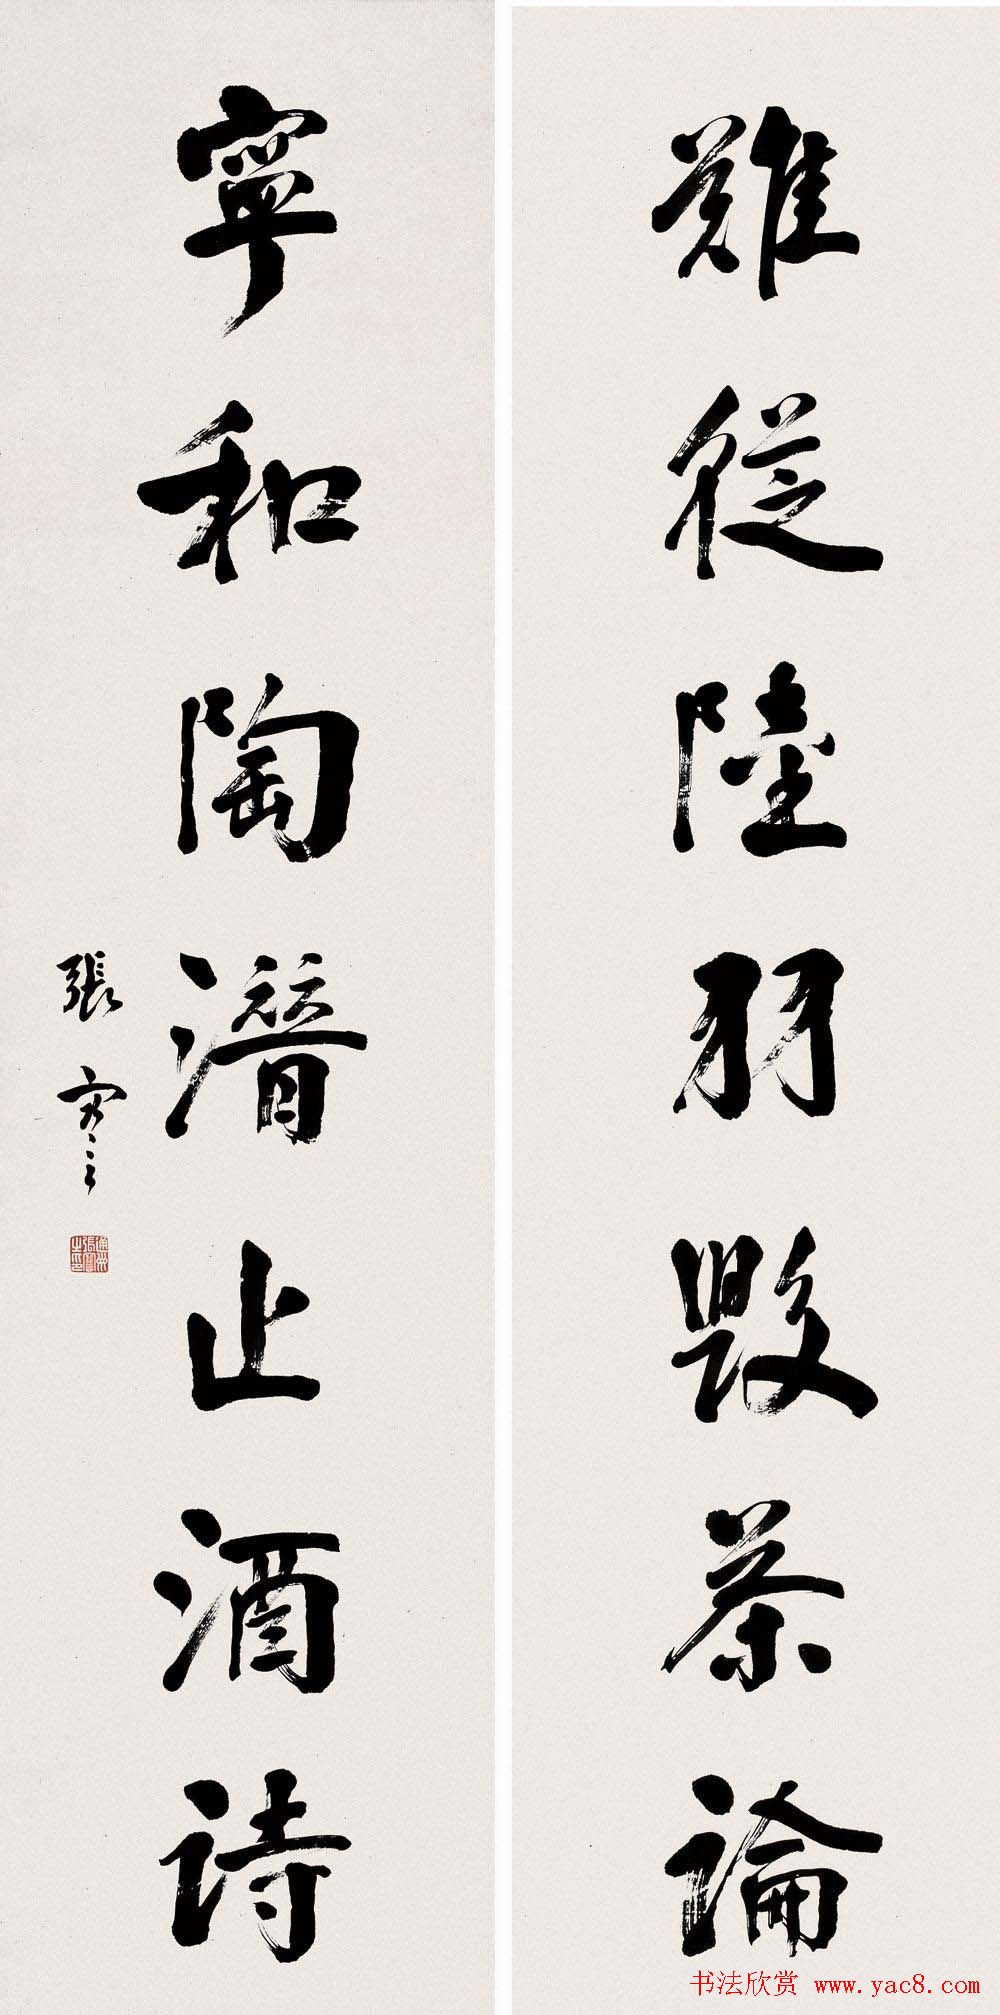 難從陸羽毀茶論
寧和陶潛止酒詩
張謇
書法欣赏 www.yac8.com